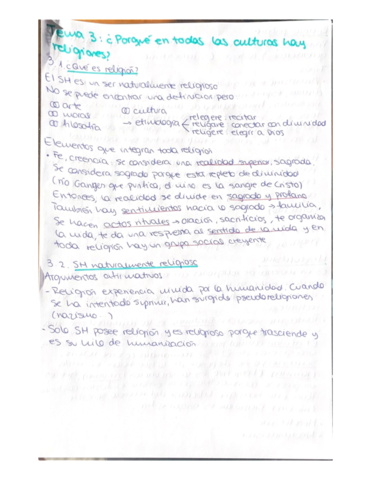 Tema 3: ¿Porqué en todas las culturas hay
religiones?
3.1 ¿Qué es religión?
El SH es un ser naturalmente religioso
No se puede encontrar una definición pero
arte cultura relegere recitar
moral → etimología religare conectar con divinidad
filosofía religere elegir a Dios
Elementos que integran toda religión
• Fe, creencia, se considera una realidad superior, sagrada
Se considera sagrado porque está repleto de divinidad
(río Ganges que purifica, el vino es la sangre de Cristo)
Entonces, la realidad se divide en sagrado y profano
También hay sentimientos hacia lo sagrado → familia,
Se hacen actos rituales → oración, sacrificios, te organiza
la vida, te da una respuesta al sentido de la vida y en
toda religión hay un grupo social creyente
3.2. SH naturalmente religioso
Argumentos afirmativos:
- Religión experiencia vivida por la humanidad. Cuando
se ha intentado suprimir, han surgido pseudoreligiones
(nazismo)
- Solo SH posee religión y es religioso porque trasciende y
es su de humanización